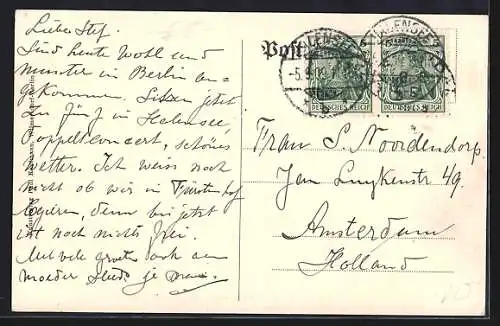 Lieber Stef.
Sind heute wohl und
munter in Berlin an-
gekommen. Sitzen jetzt
zu fünf in Halensee,
Doppelconcert, schönes
Wetter. Ich weiss noch
nicht ob wir in Fürstenhof
logieren, denn bis jetzt
ist noch nichts frei.
Met vele groeten ook aan
moeder
Post
HALENSEE
-5.9.09
DEUTSCHES REICH
HALENSEE
DEUTSCHES REICH
Frau S. Noordendorp
Jan Luykenstr 49
Amsterdam
Holland